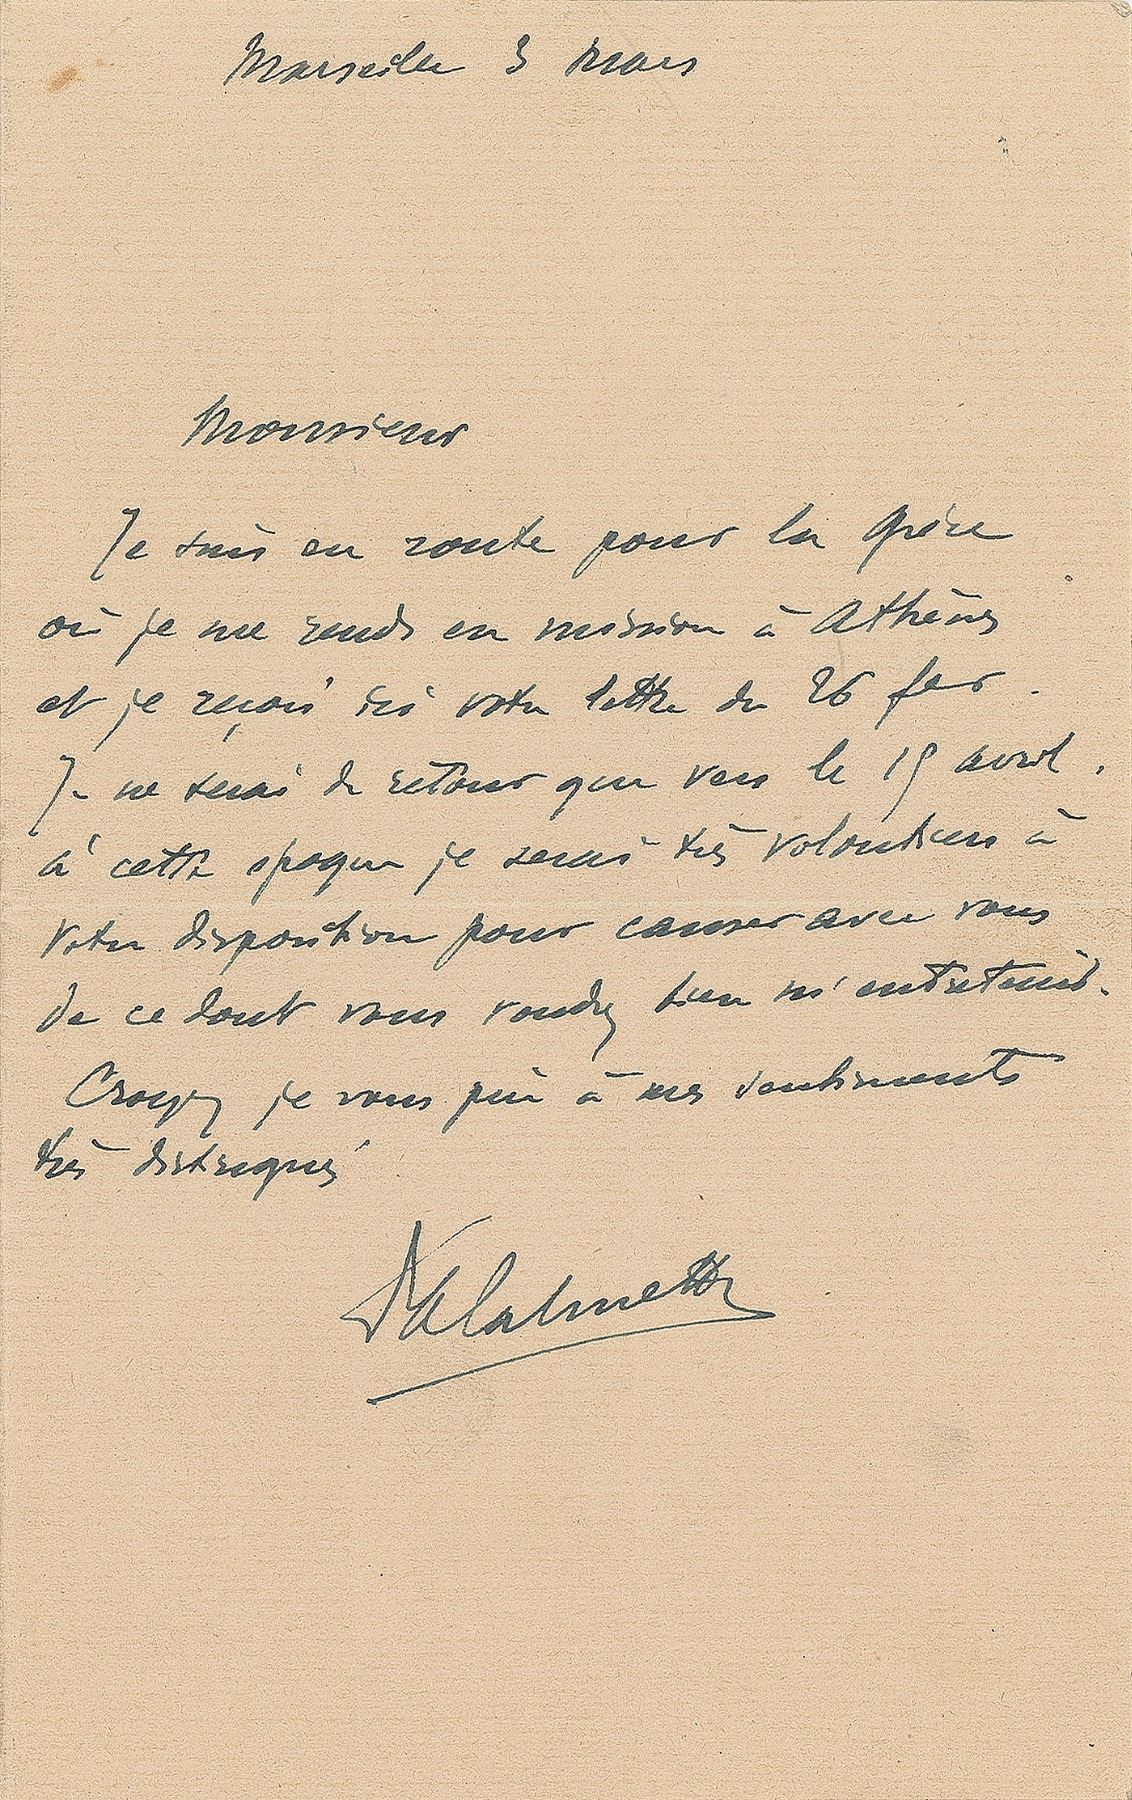 Marseille 3 mars
Monsieur
Je suis en route pour la Grèce
où je me rends en mission à Athènes
et je reçois ici votre lettre du 26 fev.
Je ne serai de retour que vers le 15 avril.
à cette époque je serai très volontiers à
votre disposition pour causer avec vous
de ce dont vous voudrez bien m'entretenir.
Croyez je vous prie à mes sentiments
très distingués
Dr A Calmette